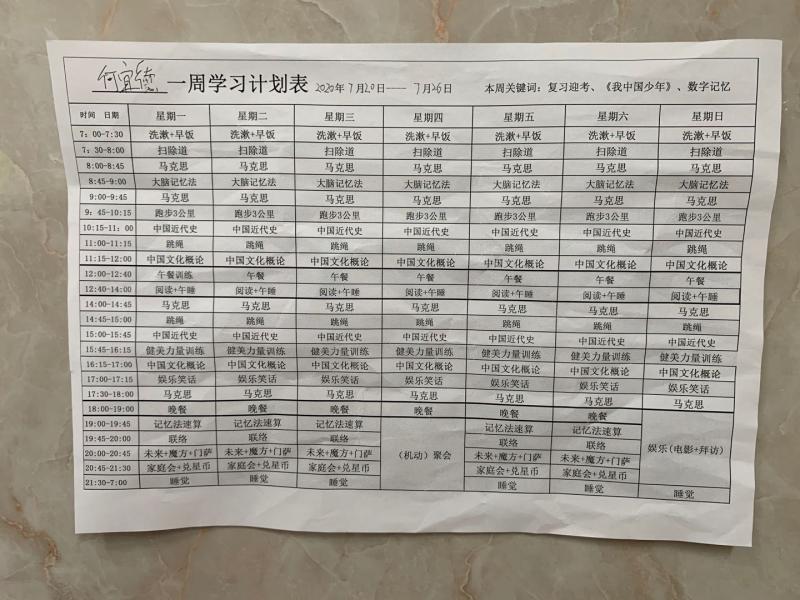 何宜德 一周学习计划表 2020年7月20日——7月26日 本周关键词：复习迎考、《我中国少年》、数字记忆
时间 日期 星期一 星期二 星期三 星期四 星期五 星期六 星期日
7：00-7:30 洗漱+早饭 洗漱+早饭 洗漱+早饭 洗漱+早饭 洗漱+早饭 洗漱+早饭 洗漱+早饭
7：30-8:00 扫除道 扫除道 扫除道 扫除道 扫除道 扫除道 扫除道
8:00-8:45 马克思 马克思 马克思 马克思 马克思 马克思 马克思
8:45-9:00 大脑记忆法 大脑记忆法 大脑记忆法 大脑记忆法 大脑记忆法 大脑记忆法 大脑记忆法
9:00-9:45 马克思 马克思 马克思 马克思 马克思 马克思 马克思
9：45-10:15 跑步3公里 跑步3公里 跑步3公里 跑步3公里 跑步3公里 跑步3公里 跑步3公里
10:15-11：00 中国近代史 中国近代史 中国近代史 中国近代史 中国近代史 中国近代史 中国近代史
11:00-11:15 跳绳 跳绳 跳绳 跳绳 跳绳 跳绳 跳绳
11:15-12:00 中国文化概论 中国文化概论 中国文化概论 中国文化概论 中国文化概论 中国文化概论 中国文化概论
12:00-12:40 午餐训练 午餐 午餐 午餐 午餐 午餐 午餐
12:40-14:00 阅读+午睡 阅读+午睡 阅读+午睡 阅读+午睡 阅读+午睡 阅读+午睡 阅读+午睡
14:00-14:45 马克思 马克思 马克思 马克思 马克思 马克思 马克思
14:45-15:00 跳绳 跳绳 跳绳 跳绳 跳绳 跳绳 跳绳
15:00-15:45 中国近代史 中国近代史 中国近代史 中国近代史 中国近代史 中国近代史 中国近代史
15:45-16:15 健美力量训练 健美力量训练 健美力量训练 健美力量训练 健美力量训练 健美力量训练 健美力量训练
16:15-17:00 中国文化概论 中国文化概论 中国文化概论 中国文化概论 中国文化概论 中国文化概论 中国文化概论
17:00-17:15 娱乐笑话 娱乐笑话 娱乐笑话 娱乐笑话 娱乐笑话 娱乐笑话 娱乐笑话
17:30-18:00 马克思 马克思 马克思 马克思 马克思 马克思 马克思
18:00-19:00 晚餐 晚餐 晚餐 晚餐 晚餐 晚餐 娱乐(电影+拜访)
19:00-19:45 记忆法速算 记忆法速算 记忆法速算 （机动）聚会 记忆法速算 记忆法速算
19:45-20:00 联络 联络 联络 联络 联络
20:00-20:45 未来+魔方+门萨 未来+魔方+门萨 未来+魔方+门萨 未来+魔方+门萨 未来+魔方+门萨
20:45-21:30 家庭会+兑星币 家庭会+兑星币 家庭会+兑星币 家庭会+兑星币 家庭会+兑星币
21:30-7:00 睡觉 睡觉 睡觉 睡觉 睡觉 睡觉